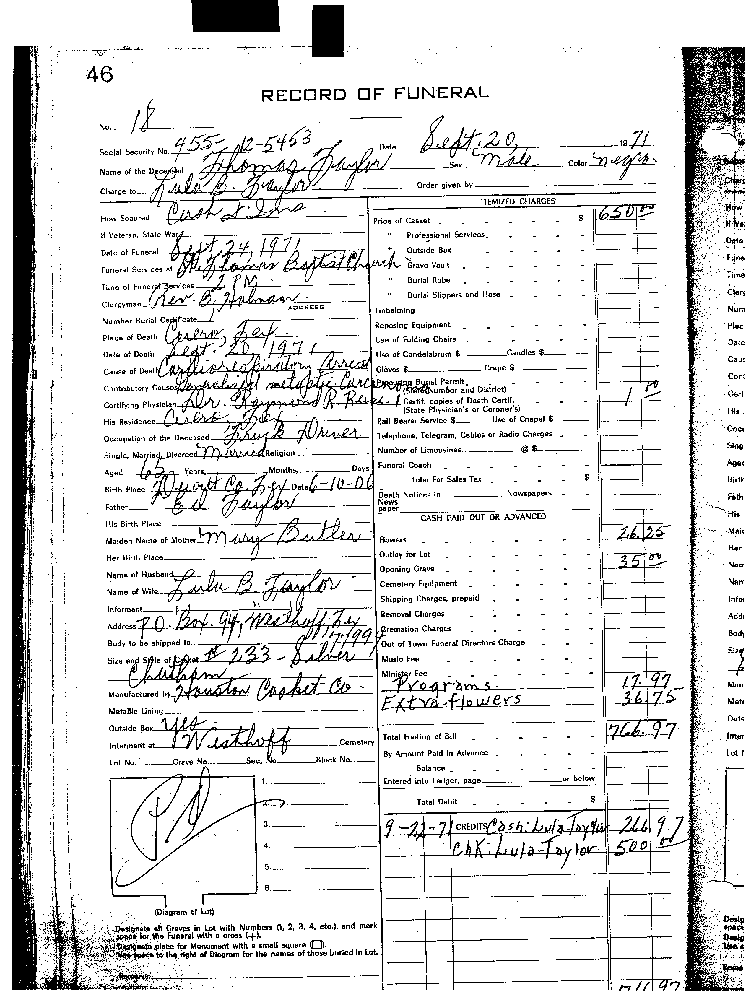 46
RECORD OF FUNERAL
No. 18
Social Security No. 455-12-5453 Date Sept. 20, 1971
Name of the Deceased Thomas Taylor Sex Male Color Negro
Charge to Lula B. Taylor Order given by
How Secured Cash & Ins
If Veteran, State War
Date of Funeral Sept. 24, 1971
Funeral Services at St. Thomas Baptist Church
Time of Funeral Services 2 PM
Clergyman Rev. B. Holman
ADDRESS
Number Burial Certificate
Place of Death Cuero, Tex
Date of Death Sept. 20 1971
Cause of Death Cardiorespiratory Arrest
Contributory Causes
Certifying Physician Dr. Raymond R.
His Residence Cuero, Tex
Occupation of the Deceased Truck Driver
Single, Married, Divorced Married Religion
Aged 65 Years Months Days
Birth Place Dewitt Co. Tex Date 6-10-06
Father Ed Taylor
His Birth Place
Maiden Name of Mother Mary Butler
Her Birth Place
Name of Husband
Name of Wife Lula B Taylor
Informant
Address P.O. Box 94, Westhoff, Tex
77994
Body to be shipped to
Size and Style of Casket # 233 - Silver
Chatham
Manufactured by Houston Casket Co.
Metallic Lining
Outside Box yes
Interment at Westhoff Cemetery
Lot No. Grave No. Sec. No. Block No.
1.
2.
3.
4.
5.
6.
Pd
(Diagram of Lot)
Designate all Graves in Lot with Numbers (1, 2, 3, 4, etc.) and mark
space for the Funeral with a cross (+).
Designate place for Monument with a small square (□).
Use space to the right of Diagram for the names of those buried in Lot.
ITEMIZED CHARGES
Price of Casket $ 650 00
" Professional Services
" Outside Box
" Grave Vault
" Burial Robe
" Burial Slippers and Hose
Embalming
Reposing Equipment
Use of Folding Chairs
Use of Candelabrum $ Candles $
Gloves $ Crape $
Burial Permit
(State Number and District)
1 Certif. copies of Death Certif. 1 00
(State Physician's or Coroner's)
Pall Bearer Service $ Use of Chapel $
Telephone, Telegram, Cables or Radio Charges
Number of Limousines @ $
Funeral Coach
Total For Sales Tax $
Death Notices in Newspapers
News
paper
CASH PAID OUT OR ADVANCED
Flowers 26.25
Outlay for Lot
Opening Grave 35 00
Cemetery Equipment
Shipping Charges, prepaid
Removal Charges
Cremation Charges
Out of Town Funeral Directors Charge
Music Fee
Minister Fee
Programs 17.97
Extra flowers 36.75
Total Footing of Bill 766.97
By Amount Paid In Advance
Balance
Entered into Ledger, page or below
Total Debit $
9-22-71 CREDITS Cash: Lula Taylor 266.97
Chk: Lula Taylor 500 00